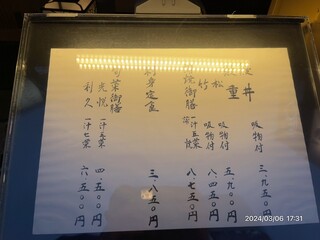 丼
吸物付
三、九五〇円
重
松
吸物付
五、九〇〇円
竹
吸物付
八、四五〇円
御膳
八、七五〇円
刺身定食
三、八五〇円
菜御膳
光悦
一汁五菜
四、五〇〇円
利久
一汁七菜
六、五〇〇円
2024/03/06 17:31